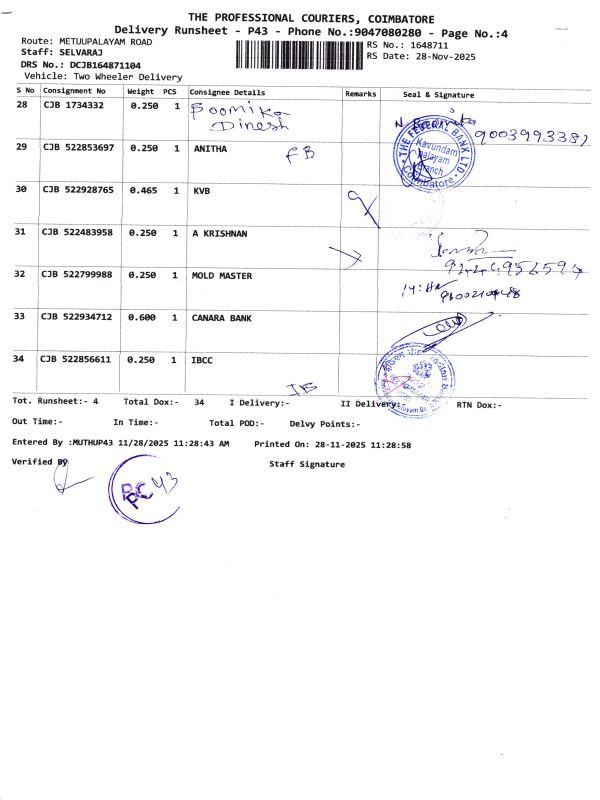 THE PROFESSIONAL COURIERS, COIMBATORE
Delivery Runsheet - P43 - Phone No.:9047080280 - Page No.:4
Route: METUUPALAYAM ROAD
RS No.: 1648711
Staff: SELVARAJ
RS Date: 28-Nov-2025
DRS No.: DCJB164871104
Vehicle: Two Wheeler Delivery
S No Consignment No Weight PCS Consignee Details Remarks Seal & Signature
28 CJB 1734332 0.250 1 Boomika
Dinesh
9003993381
29 CJB 522853697 0.250 1 ANITHA
FB
THE FEDERAL BANK LTD.
Kavundam
palayam
Branch
Coimbatore
30 CJB 522928765 0.465 1 KVB
31 CJB 522483958 0.250 1 A KRISHNAN
32 CJB 522799988 0.250 1 MOLD MASTER
33 CJB 522934712 0.600 1 CANARA BANK
34 CJB 522856611 0.250 1 IBCC
IB
Tot. Runsheet:- 4 Total Dox:- 34 I Delivery:- II Delivery:- RTN Dox:-
Out Time:- In Time:- Total POD:- Delvy Points:-
Entered By :MUTHUP43 11/28/2025 11:28:43 AM Printed On: 28-11-2025 11:28:58
Verified By Staff Signature
PC
P43